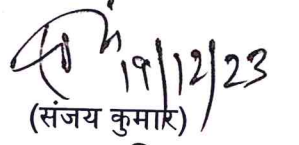 19/12/23
(संजय कुमार)